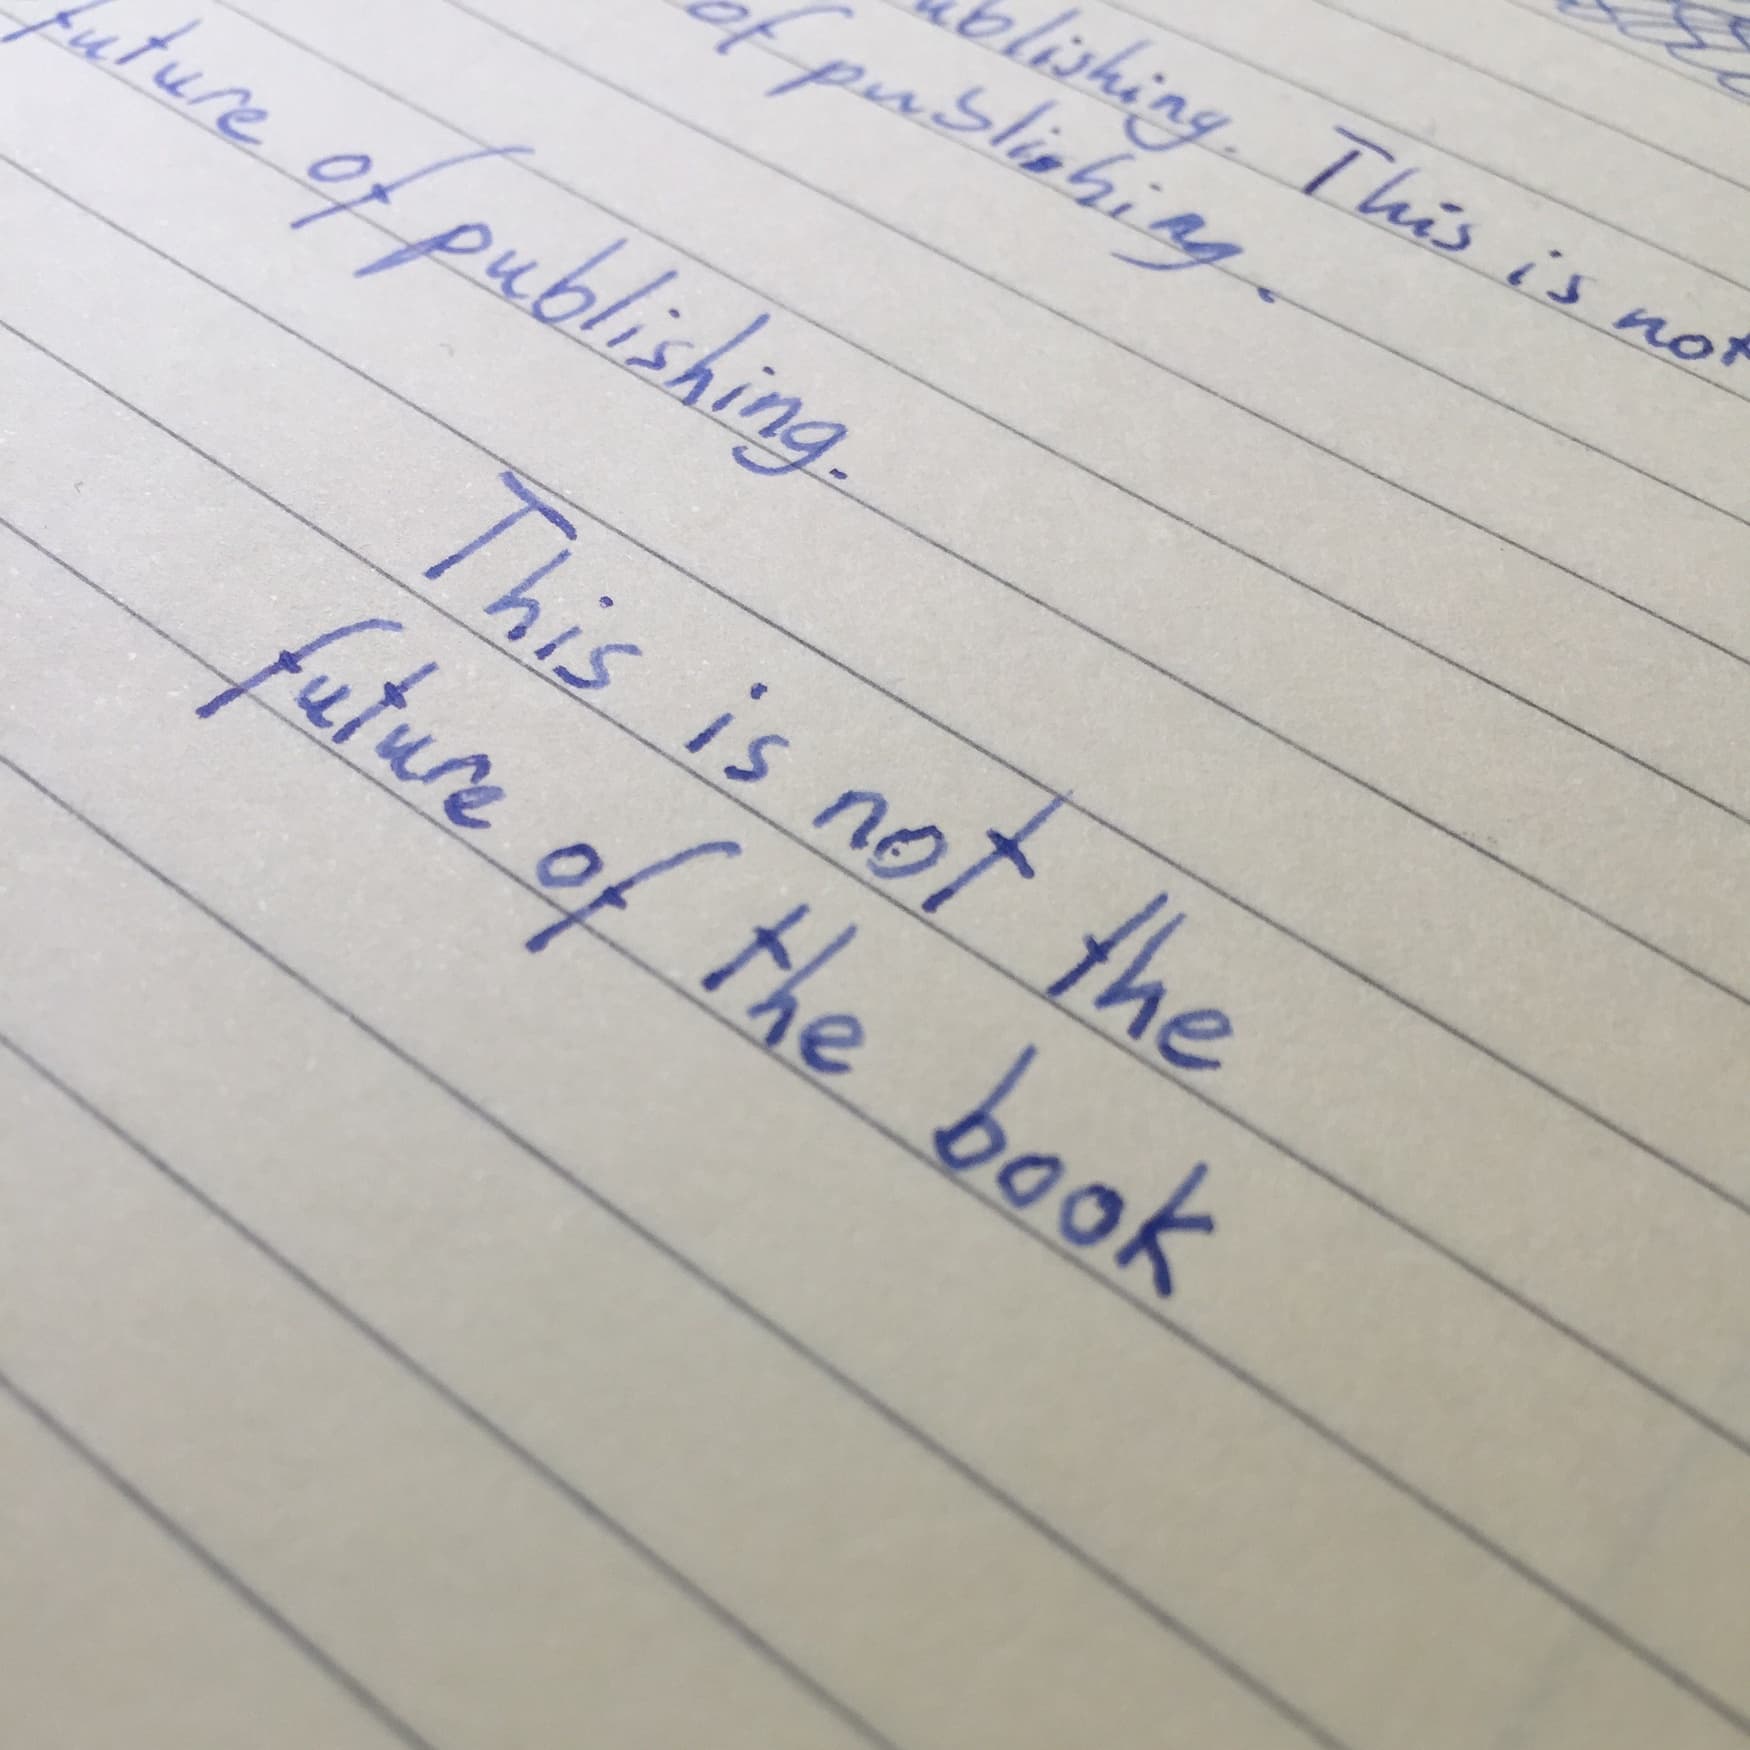 ublishing. This is not
of publishing.
future of publishing.
This is not the
future of the book